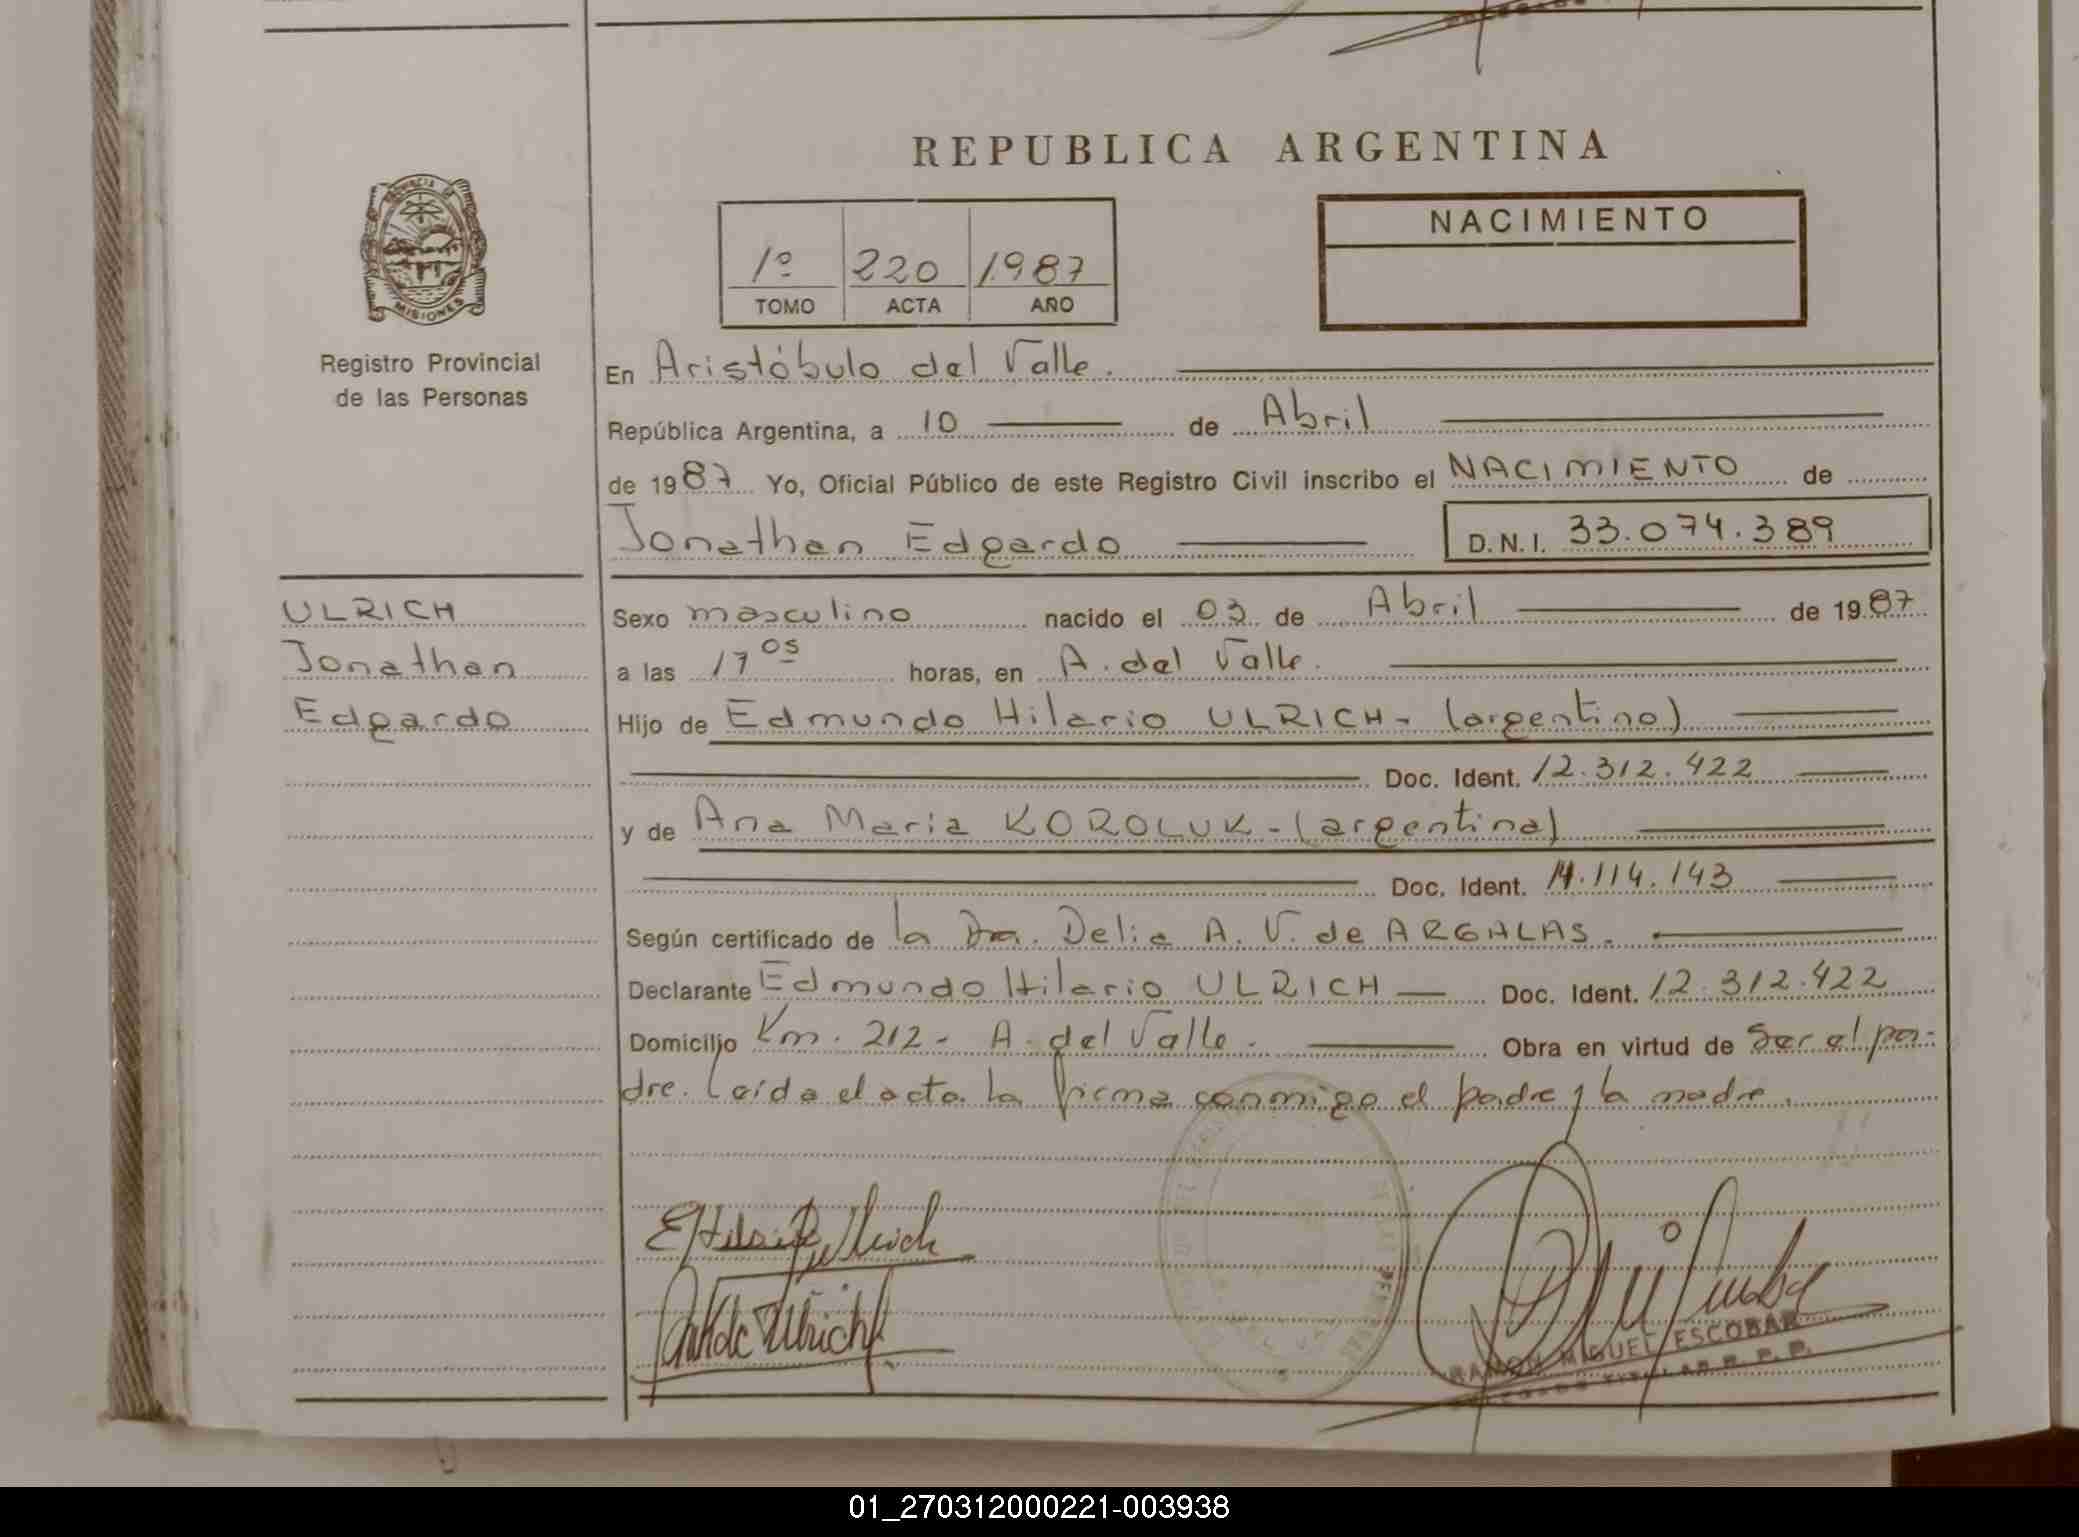 REPUBLICA ARGENTINA
PROVINCIA DE
MISIONES
Registro Provincial
de las Personas
1º 220 1987
TOMO ACTA AÑO
NACIMIENTO
En Aristóbulo del Valle.
República Argentina, a 10 de Abril
de 1987 Yo, Oficial Público de este Registro Civil inscribo el NACIMIENTO de
Jonathan Edgardo D.N.I. 33.074.389
ULRICH
Jonathan
Edgardo
Sexo masculino nacido el 03 de Abril de 1987
a las 17 05 horas, en A. del Valle.
Hijo de Edmundo Hilario ULRICH - (argentino)
Doc. Ident. 12.312.422
y de Ana Maria KOROLUK - (argentina)
Doc. Ident. 14.114.143
Según certificado de la Dra. Delia A. V. de ARGALAS.
Declarante Edmundo Hilario ULRICH Doc. Ident. 12.312.422
Domicilio Km. 212 - A. del Valle. Obra en virtud de Ser el pa-
dre. Leída el acta la firma conmigo el padre y la madre.
RAMON MIGUEL ESCOBAR
01_270312000221-003938